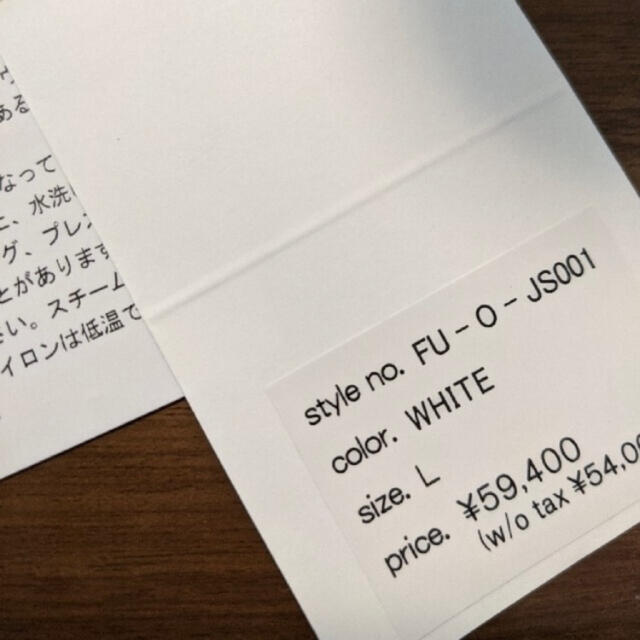 ある
なって
に、水洗
グ、プレ
とがあります
さい。スチーム
イロンは低温で
style no. FU - O - JS001
color. WHITE
size. L
price. ¥59,400
(w/o tax ¥54,00